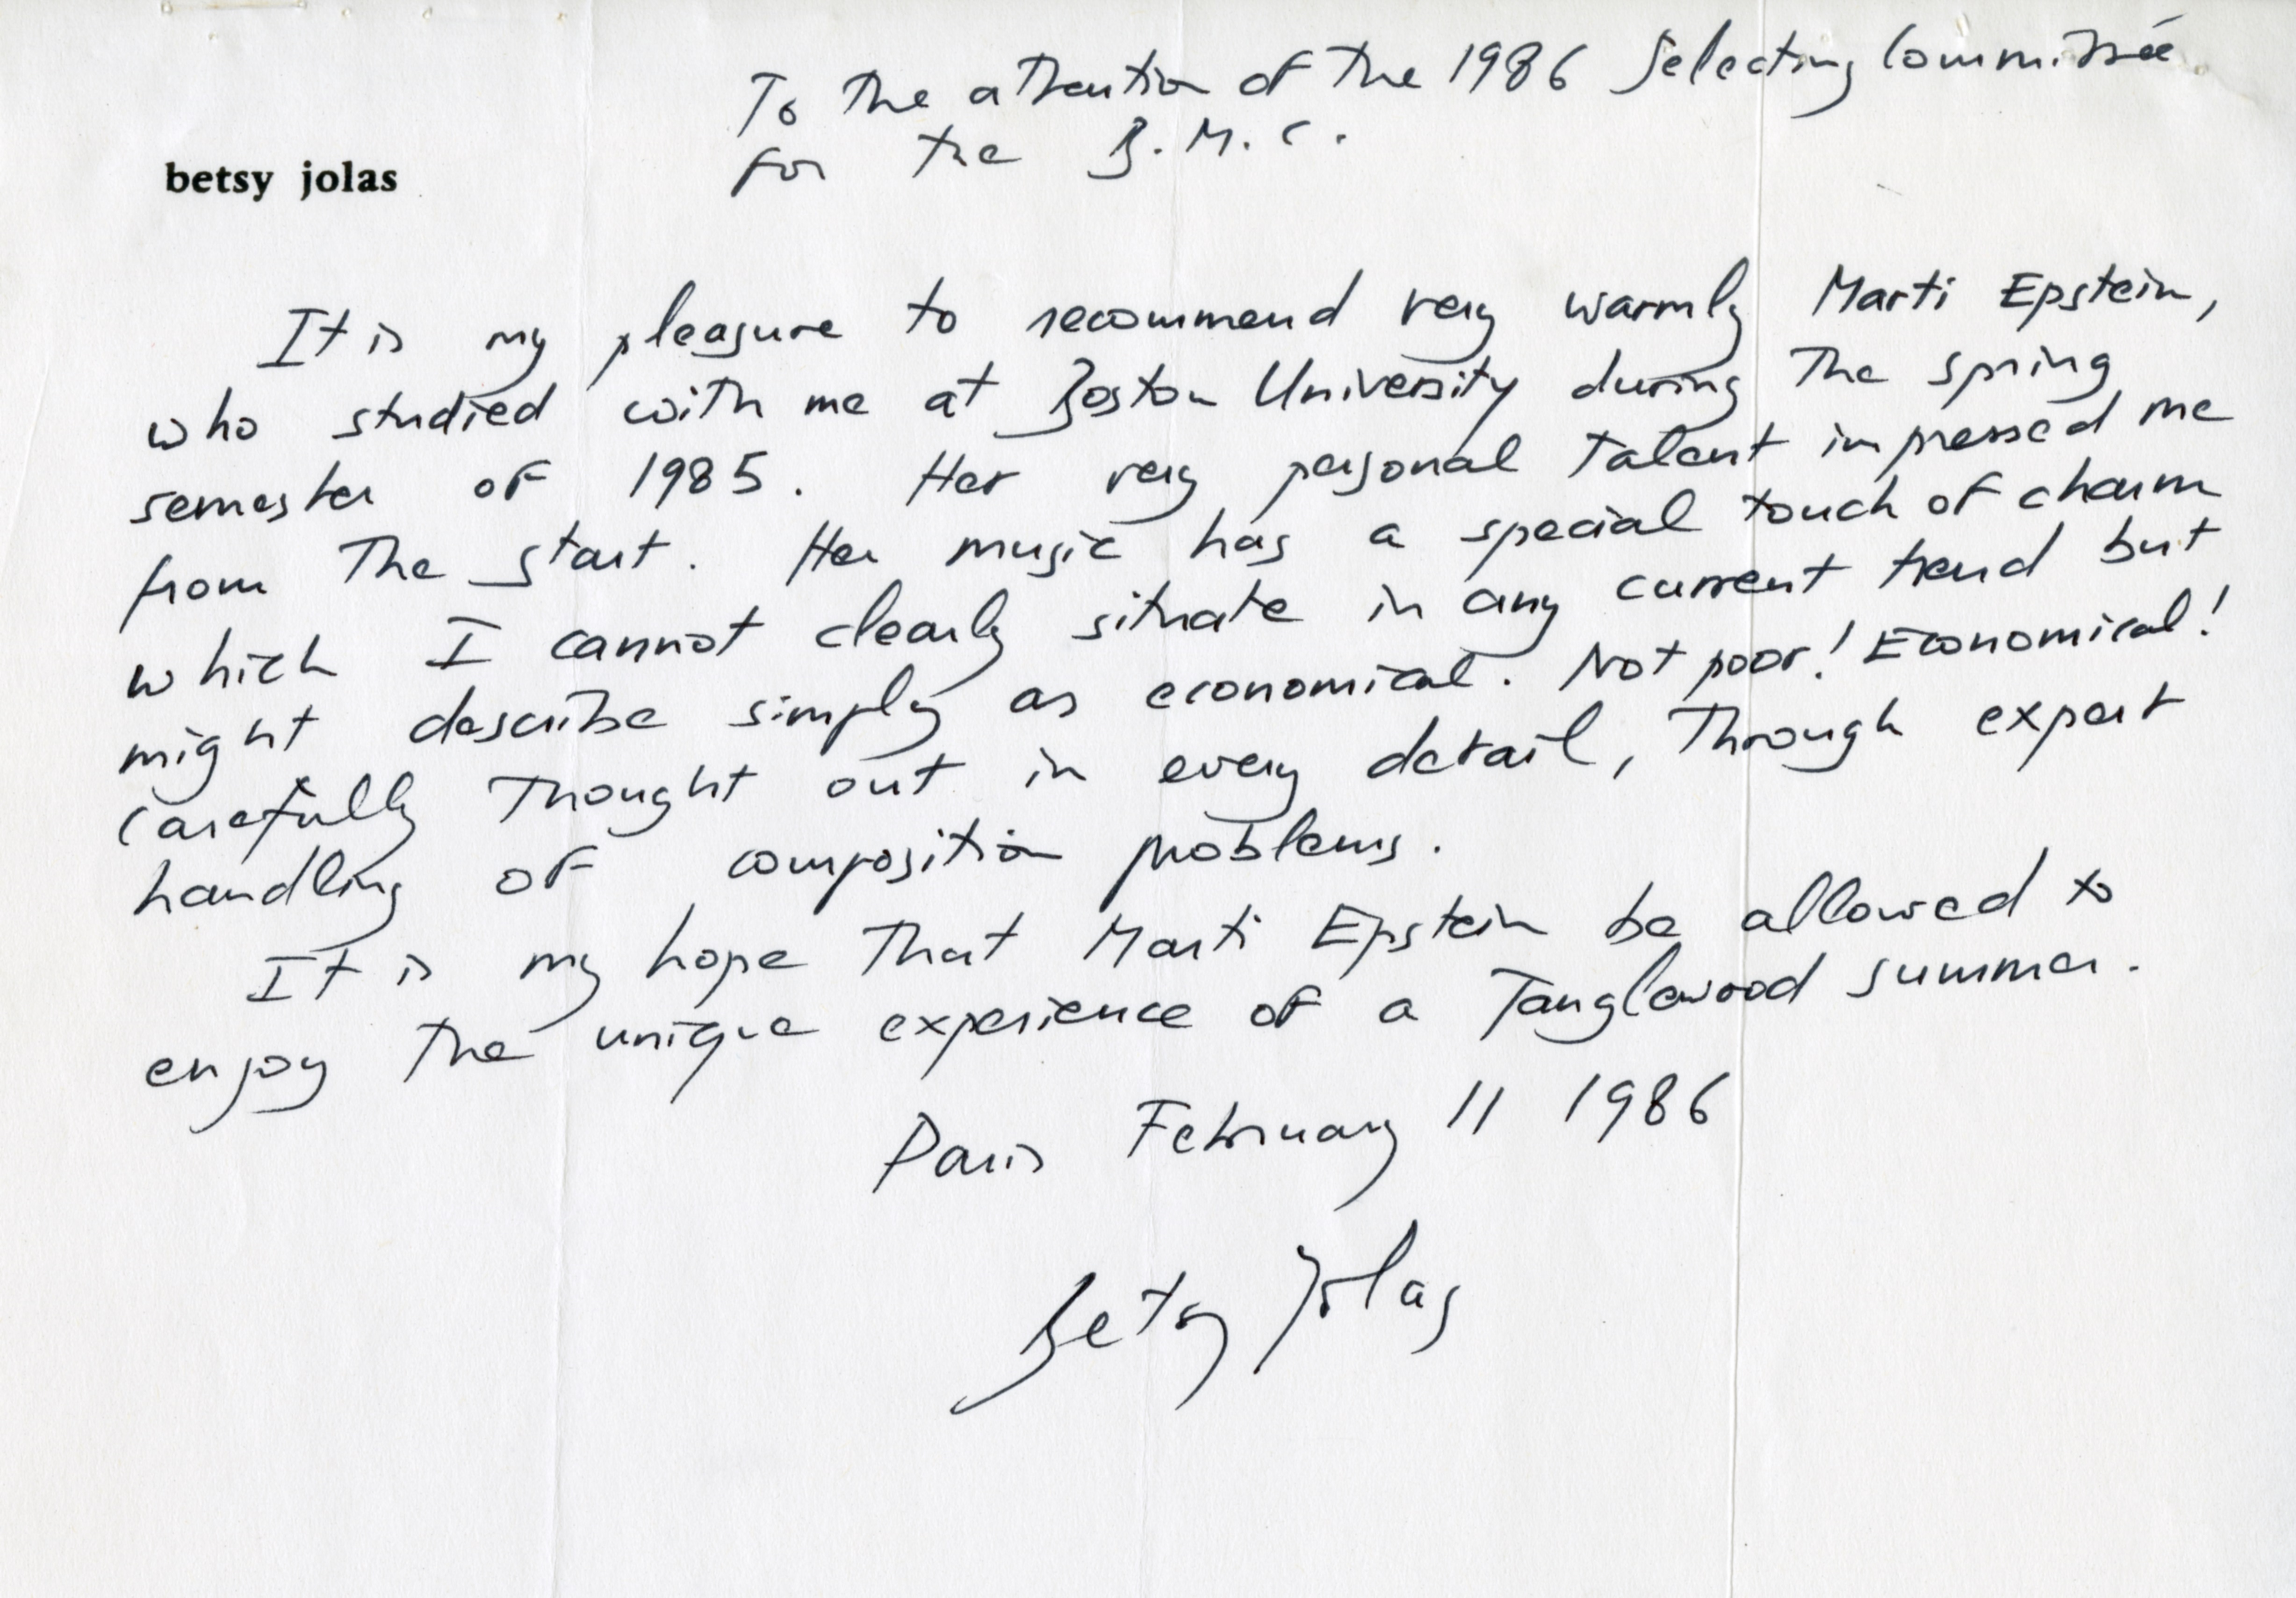 To the attention of the 1986 Selecting Committée
for the B.M.C.
betsy jolas
It is my pleasure to recommend very warmly Marti Epstein,
who studied with me at Boston University during the spring
semester of 1985. Her very personal talent impressed me
from the start. Her music has a special touch of charm
which I cannot clearly situate in any current trend but
might describe simply as economical. Not poor! Economical!
Carefully thought out in every detail, through expert
handling of composition problems.
It is my hope that Marti Epstein be allowed to
enjoy the unique experience of a Tanglewood summer.
Paris February 11 1986
Betsy Jolas